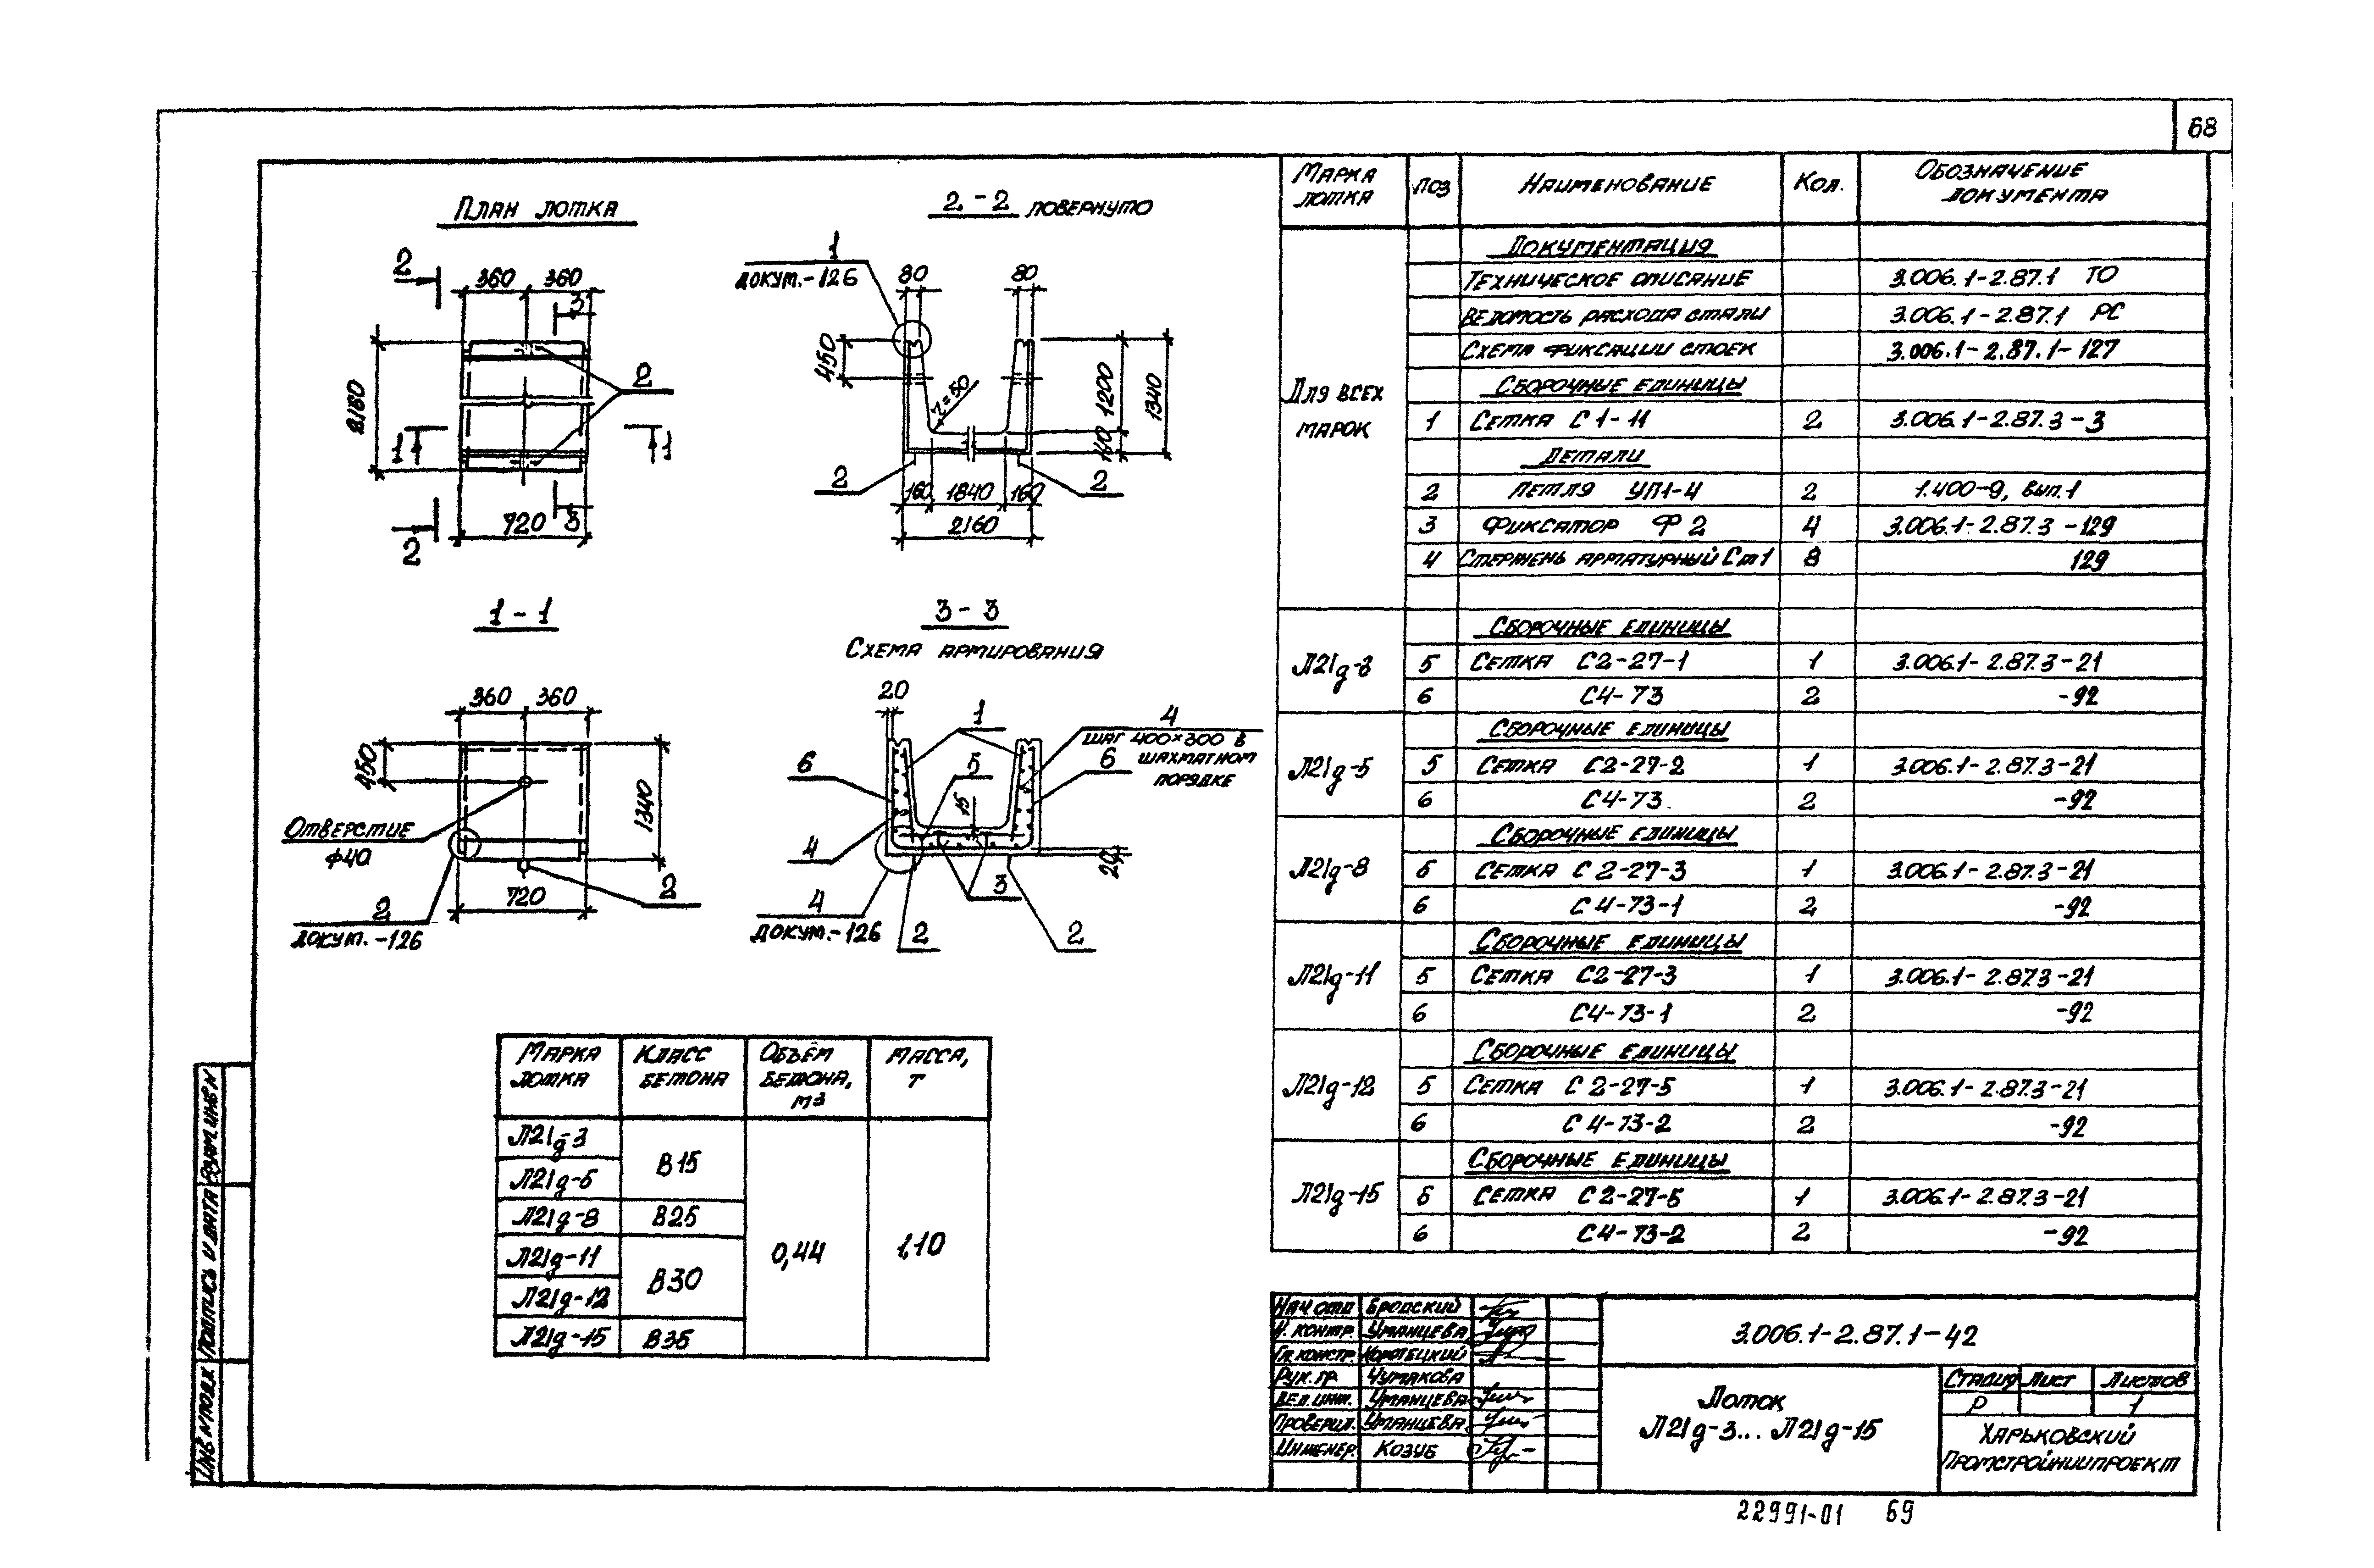 68
План лотка
2
360 360
3
2160
2
1 1
2
720 3
2 - 2 повернуто
1
докум.-126
80 80
450
r=50
1200
1340
140
2 2
160 1840 160
2160
1 - 1
360 360
450
1340
Отверстие
ϕ40
2
докум.-126
720
2
3 - 3
Схема армирования
20
1
4
шаг 400×300 в
шахматном
порядке
6 5 6
15
4
20
3
4
докум.-126
2 2
Марка лотка Класс бетона Объём бетона, м3 Масса, т
Л21д-3 В15 0,44 1,10
Л21д-5
Л21д-8 В25
Л21д-11 В30
Л21д-12
Л21д-15 В35
Марка лотка Поз Наименование Кол. Обозначение документа
Для всех марок
Документация
Техническое описание 3.006.1-2.87.1 ТО
Ведомость расхода стали 3.006.1-2.87.1 РС
Схема фиксации стоек 3.006.1-2.87.1-127
Сборочные единицы
1 Сетка С1-11 2 3.006.1-2.87.3-3
Детали
2 Петля УП1-4 2 1.400-9, вып.1
3 Фиксатор Ф2 4 3.006.1-2.87.3-129
4 Стержень арматурный Ст1 8 129
Л21д-3 Сборочные единицы
5 Сетка С2-27-1 1 3.006.1-2.87.3-21
6 С4-73 2 -92
Л21д-5 Сборочные единицы
5 Сетка С2-27-2 1 3.006.1-2.87.3-21
6 С4-73 2 -92
Л21д-8 Сборочные единицы
5 Сетка С2-27-3 1 3.006.1-2.87.3-21
6 С4-73-1 2 -92
Л21д-11 Сборочные единицы
5 Сетка С2-27-3 1 3.006.1-2.87.3-21
6 С4-73-1 2 -92
Л21д-12 Сборочные единицы
5 Сетка С2-27-5 1 3.006.1-2.87.3-21
6 С4-73-2 2 -92
Л21д-15 Сборочные единицы
5 Сетка С2-27-5 1 3.006.1-2.87.3-21
6 С4-73-2 2 -92
Нач отд Бродский
Н. контр. Уманцева
Гл. констр. Коротецкий
Рук. гр. Чумакова
Вед. инж. Уманцева
Проверил. Уманцева
Инженер. Козуб
3.006.1-2.87.1-42
Лоток
Л21д-3... Л21д-15
Стадия Лист Листов
Р 1
Харьковский
Промстройниипроект
Инв N подл Подпись и дата Взам инв N
22991-01 69